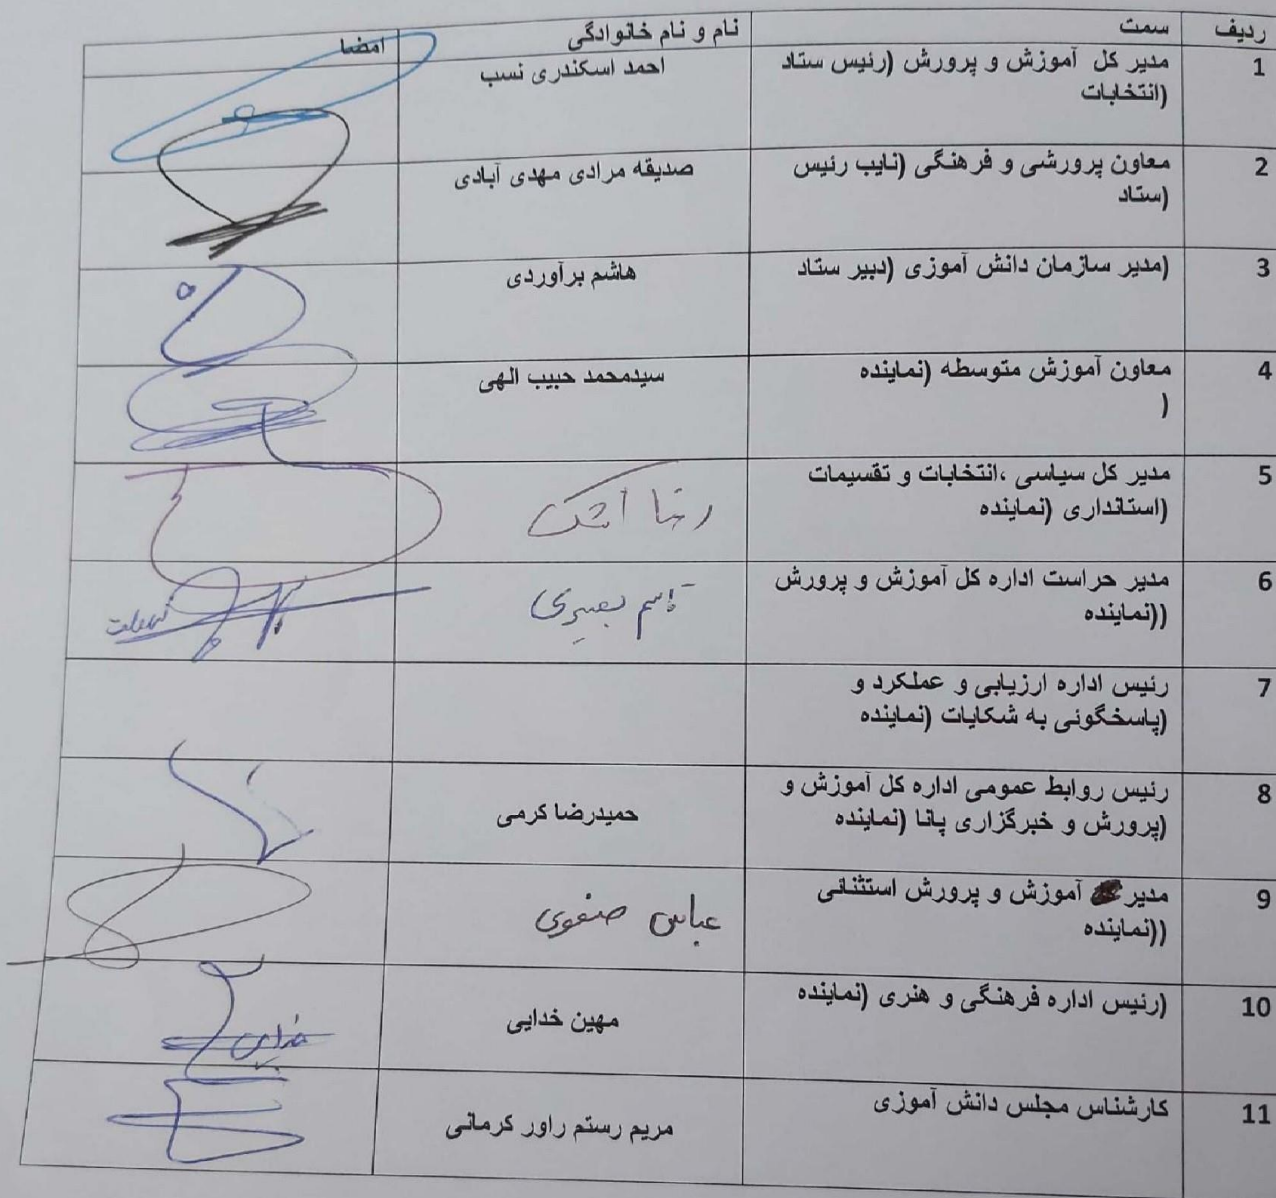 ردیف سمت نام و نام خانوادگی امضا
1 مدیر کل آموزش و پرورش (رئیس ستاد احمد اسکندری نسب
(انتخابات
2 معاون پرورشی و فرهنگی (نایب رئیس صدیقه مرادی مهدی آبادی
(ستاد
3 (مدیر سازمان دانش آموزی (دبیر ستاد هاشم برآوردی
4 معاون آموزش متوسطه (نماینده سیدمحمد حبیب الهی
(
5 مدیر کل سیاسی ،انتخابات و تقسیمات رضا اشک
(استانداری (نماینده
6 مدیر حراست اداره کل آموزش و پرورش بصیری
((نماینده
7 رئیس اداره ارزیابی و عملکرد و
(پاسخگوئی به شکایات (نماینده
8 رئیس روابط عمومی اداره کل آموزش و حمیدرضا کرمی
(پرورش و خبرگزاری پانا (نماینده
9 مدیر آموزش و پرورش استثنائی عباس صفوی
((نماینده
10 (رئیس اداره فرهنگی و هنری (نماینده مهین خدایی
خدایی
11 کارشناس مجلس دانش آموزی مریم رستم راور کرمانی